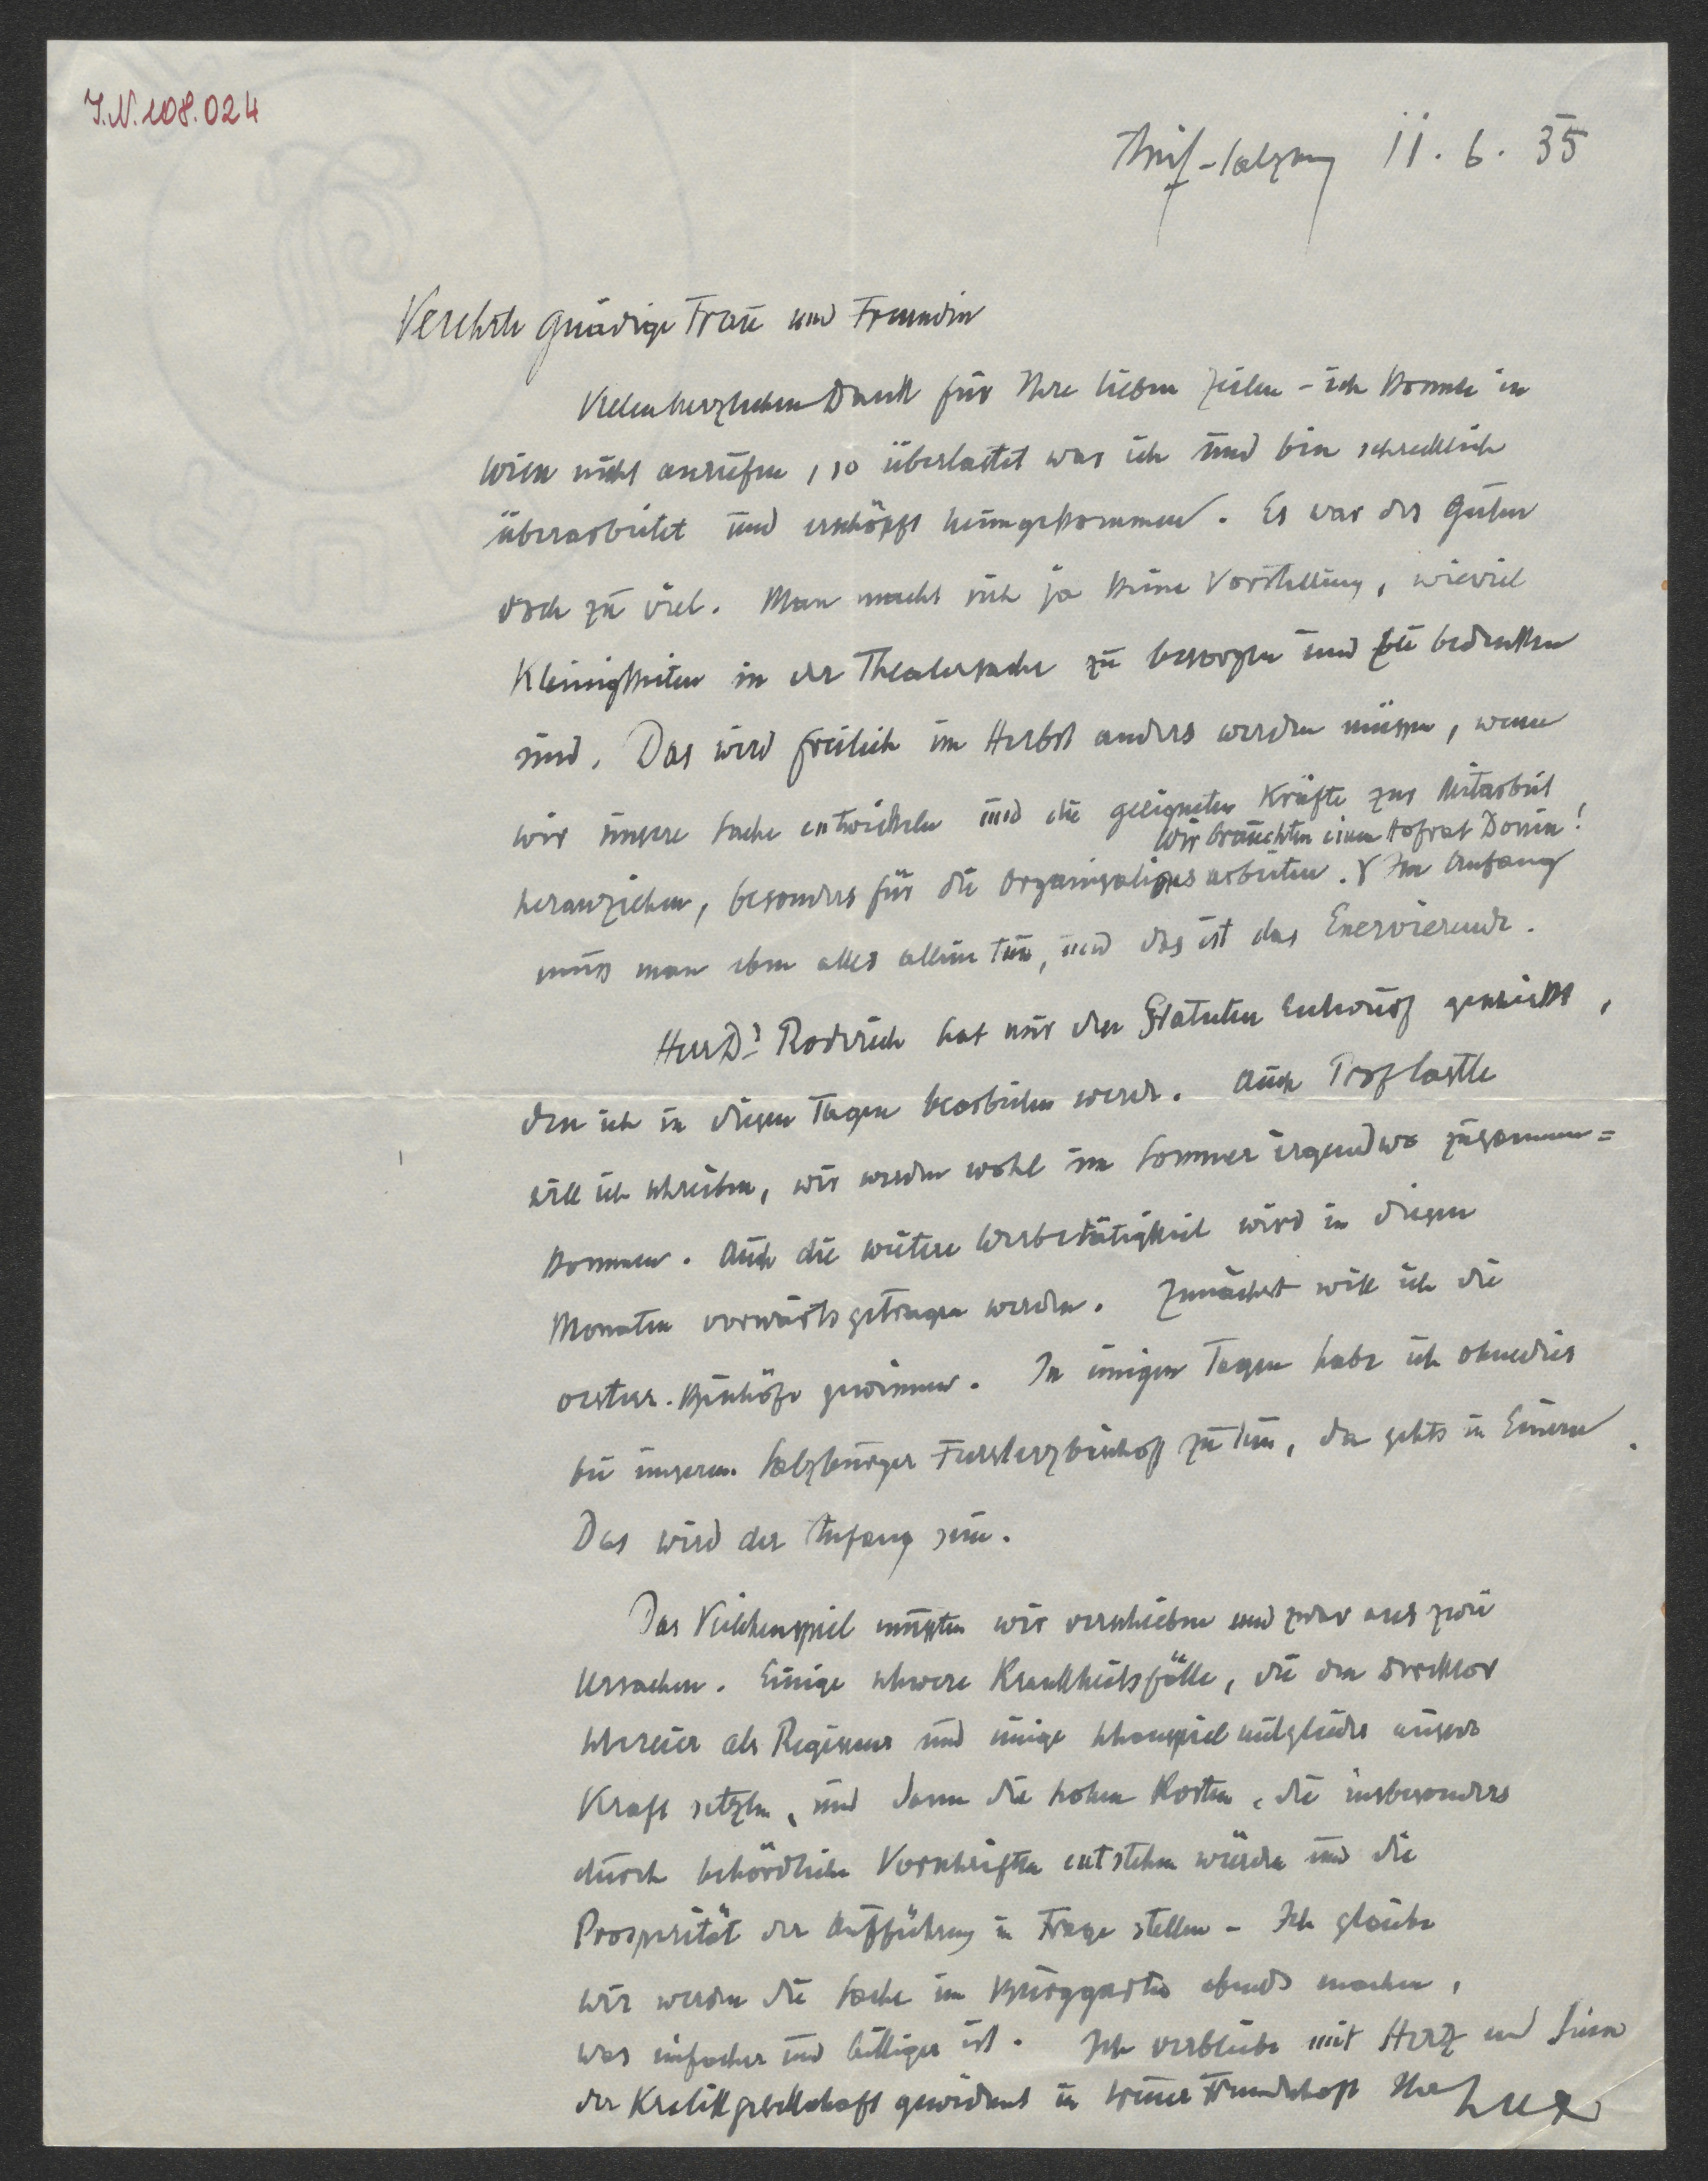 I.N. 108.024
Anif-Salzburg 11. 6. 35
Verehrte gnädige Frau und Freundin
Vielen herzlichen Dank für Ihre lieben Zeilen - ich konnte in
Wien nicht anrufen, so überlastet war ich und bin schrecklich
überarbeitet und erschöpft heimgekommen. Es war des Guten
doch zu viel. Man macht sich ja keine Vorstellung, wieviel
Kleinigkeiten in der Theatersache zu besorgen und zu bedenken
sind. Das wird freilich im Herbst anders werden müssen, wenn
wir unsere Sache entwickeln und die geeigneten Kräfte zur Mitarbeit
Wir bräuchten einen Hofrat Donin!
heranziehen, besonders für die Organisationsarbeiten. Im Anfang
muss man eben alles allein tun, und das ist das Enervierende.
Herr Dr Roderich hat mir den Statuten Entwurf geschickt,
den ich in diesen Tagen bearbeiten werde. Auch Prof
will ich schreiben, wir werden wohl im Sommer irgendwo zusammen=
kommen. Auch die weitere Werbetätigkeit wird in diesen
Monaten vorwärts getragen werden. Zunächst will ich die
oesterr. Bischöfe gewinnen. In einigen Tagen habe ich ohnedies
bei unserem Salzburger Fuersterzbischof zu tun, da gehts in Einem.
Das wird der Anfang sein.
Das Veilchenspiel mussten wir verschieben und zwar aus zwei
Ursachen. Einige schwere Krankheitsfälle, die den Direktor
als Regisseur und einige Schauspielmitglieder ausser
Kraft setzten, und dann die hohen Kosten, die insbesonders
durch behördliche Vorschriften entstehen würden und die
Prosperität der Aufführung in Frage stellen - Ich glaube
wir werden die Sache im Burggarten abends machen,
was einfacher und billiger ist. Ich verbleibe mit Herz und Sinn
der Kralikgesellschaft gewidmet in treuer Freundschaft Ihr Lux